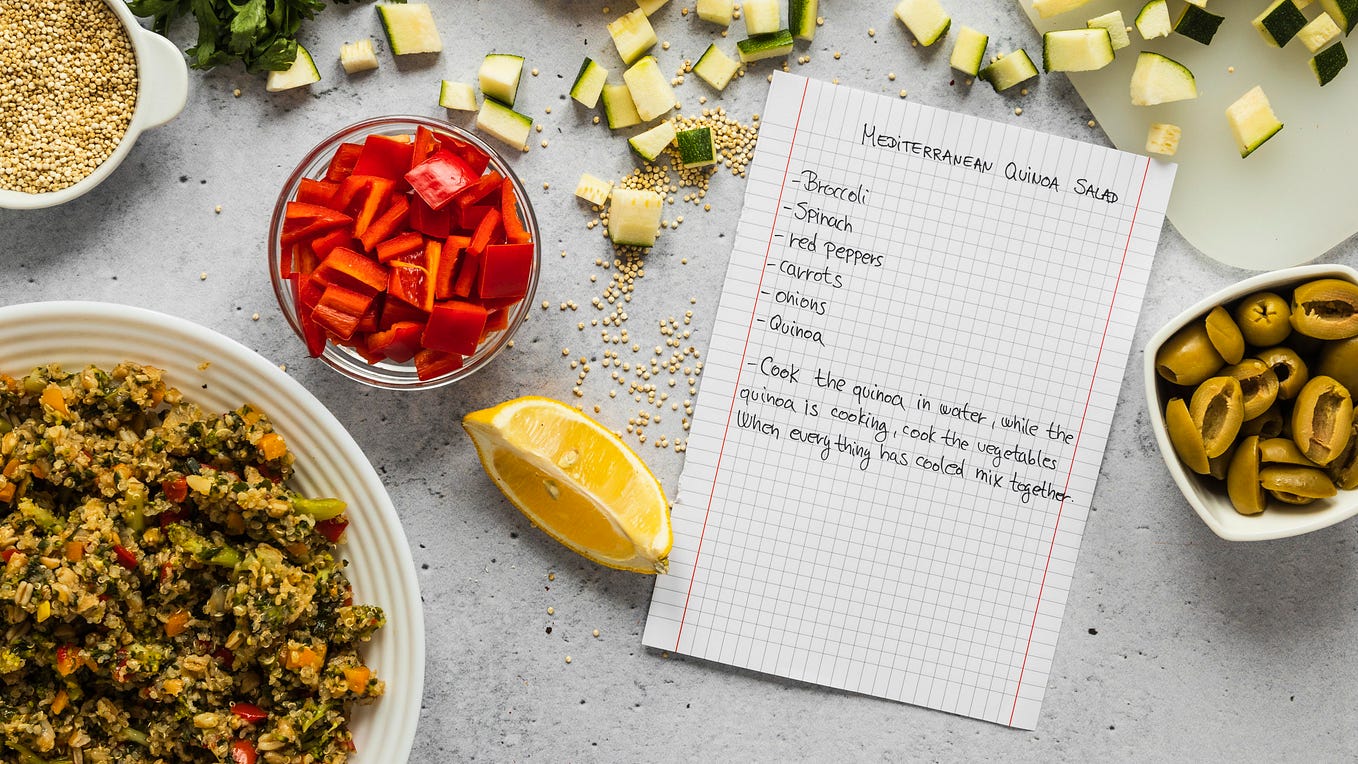 Mediterranean Quinoa Salad
- Broccoli
- Spinach
- red peppers
- carrots
- onions
- Quinoa
- Cook the quinoa in water, while the
quinoa is cooking, cook the vegetables
When everything has cooled mix together.